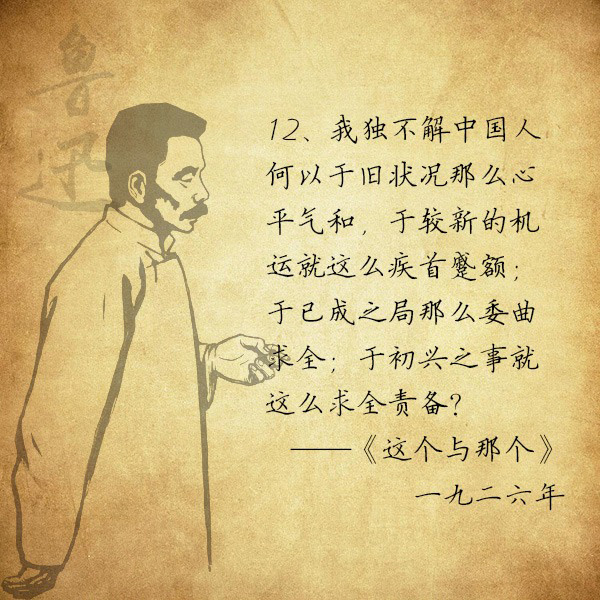 鲁迅
12、我独不解中国人
何以于旧状况那么心
平气和，于较新的机
运就这么疾首蹙额；
于已成之局那么委曲
求全；于初兴之事就
这么求全责备？
——《这个与那个》
一九二六年